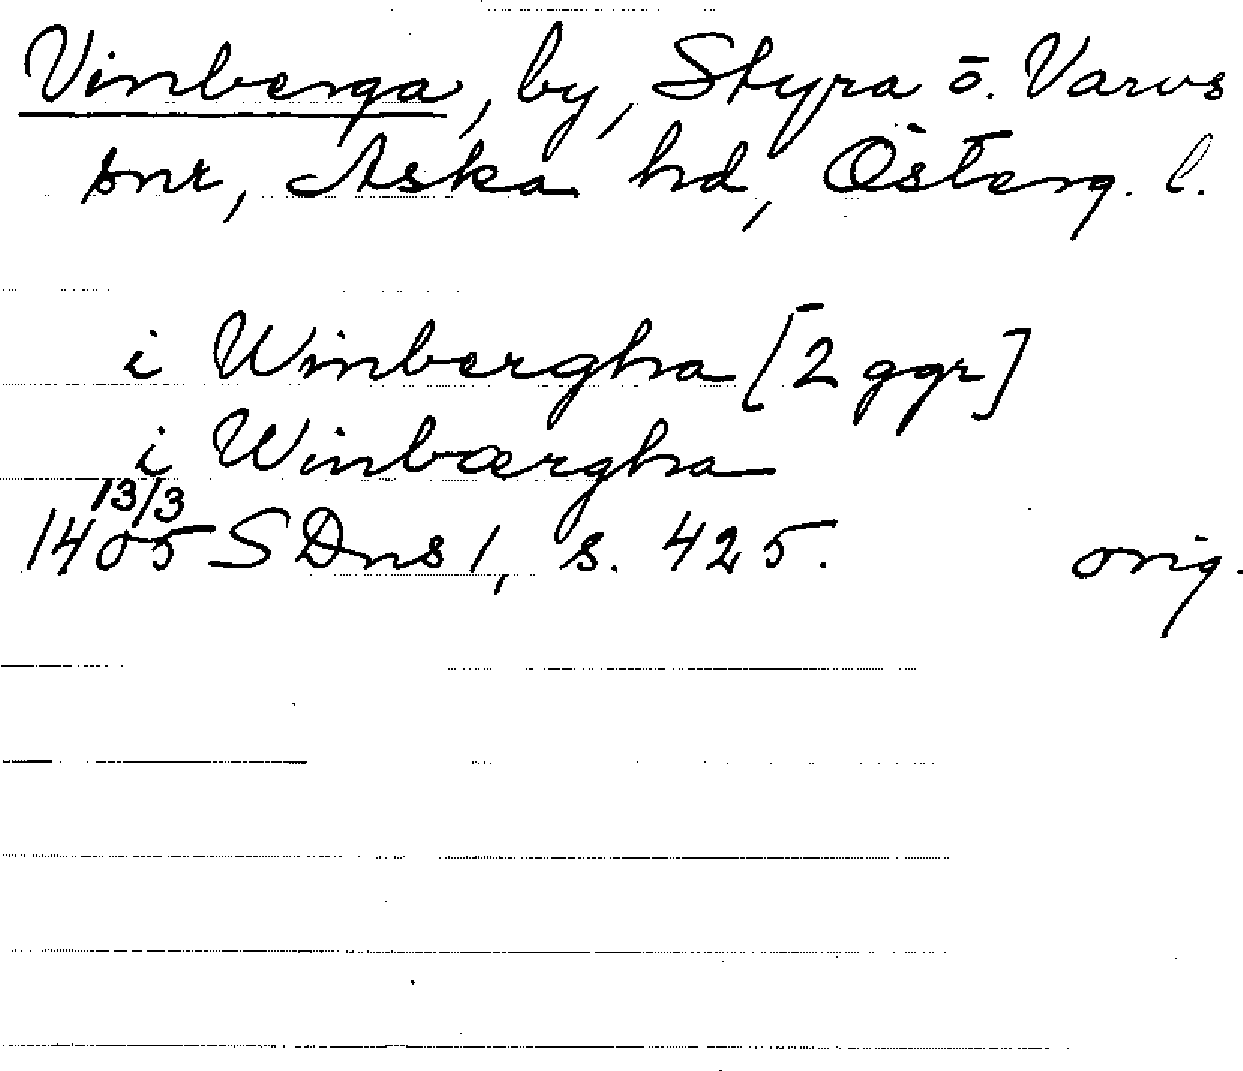 Vinberga, by, Styra o. Varvs
snr, Aska hd, Österg. l.
i Winbergha [2 ggr]
i Winbærgha
13/3
1405 SDns 1, s. 425. orig.